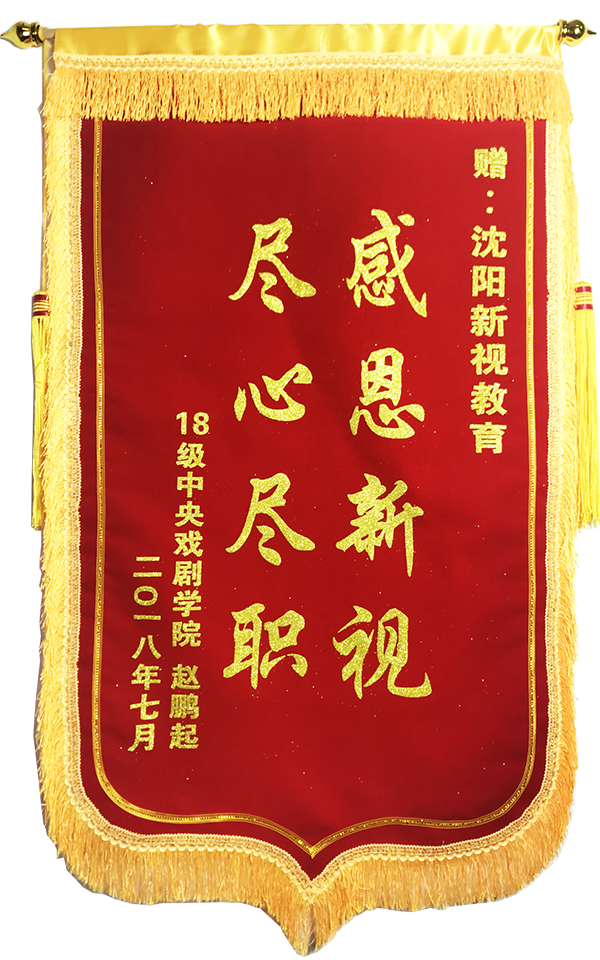 赠：沈阳新视教育
感恩新视
尽心尽职
18级中央戏剧学院 赵鹏起
二〇一八年七月